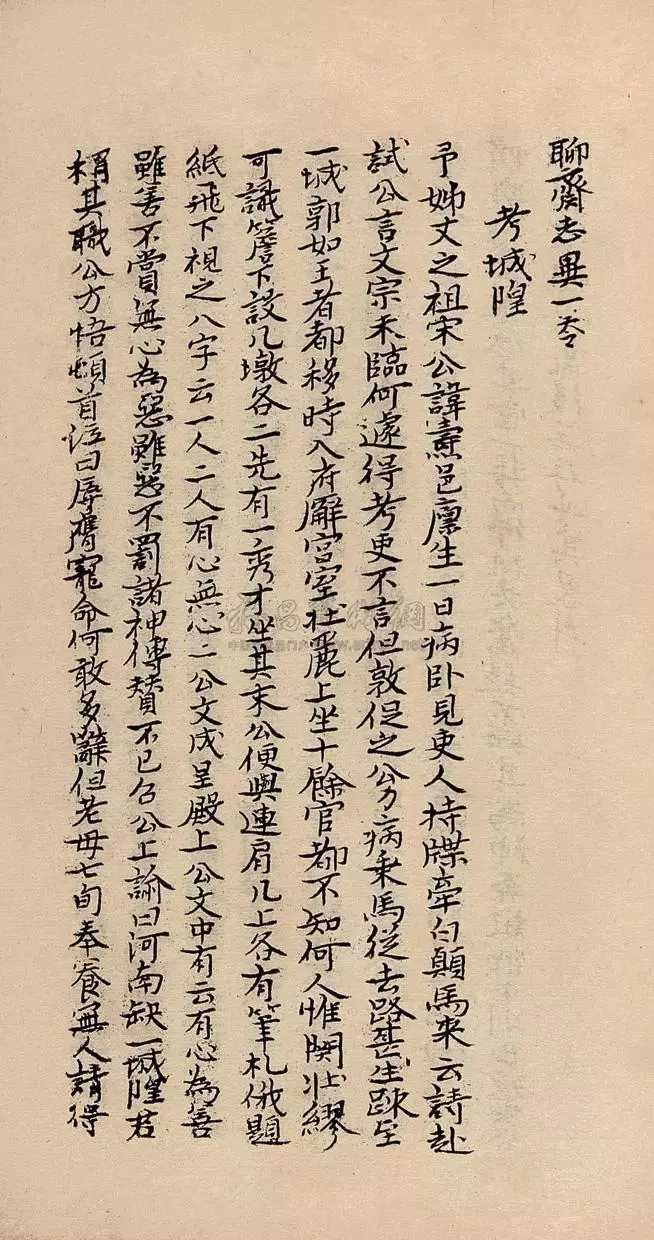 聊齋志異一卷
考城隍
予姊丈之祖宋公諱燾邑廪生一日病卧見吏人持牒牽白顛馬来云請赴
試公言文宗未臨何遽得考吏不言但敦促之公力病乗馬從去路甚生踈至
一城郭如王者都移時入府廨宫室壮麗上坐十餘官都不知何人惟関壮繆
可識簷下設几墩各二先有一秀才坐其末公便與連肩几上各有筆札俄題
紙飛下視之八字云一人二人有心無心二公文成呈殿上公文中有云有心為善
雖善不賞無心為惡雖惡不罰諸神傳贊不已召公上諭曰河南缺一城隍君
稱其職公方悟頓首泣曰辱膺寵命何敢多辭但老母七旬奉養無人請得